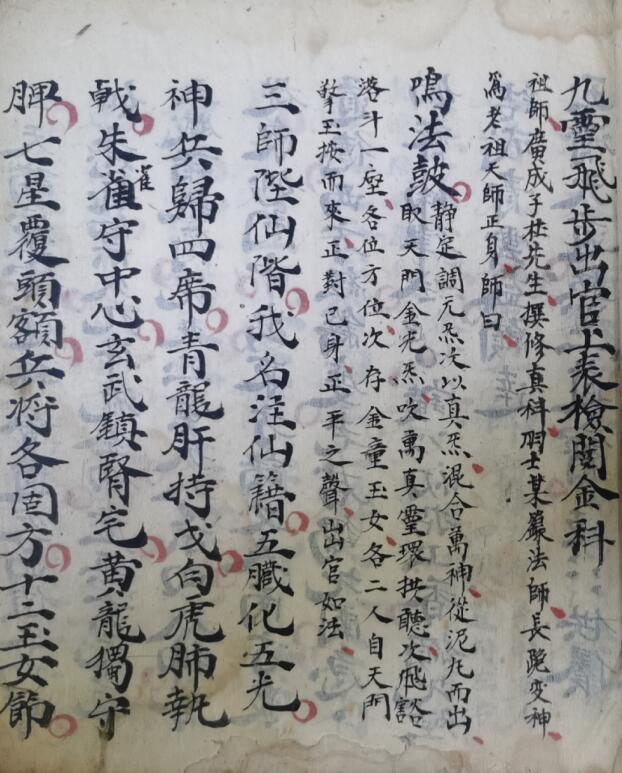 九靈飛步出官上表檢閱金科
祖師廣成子杜先生撰修真科羽士某籙法師長跪变神
為老祖天師正身師曰
鳴法皷静定調元炁次以真炁混合萬神從泥丸而出
取天門金光炁吹萬真靈環拱聽次飛
落斗一座各位方位次存金童玉女各二人自天門
擎玉按而來正對已身正平之聲出官如法
三師陛仙階我名注仙籍五臟化五光
神兵歸四席青龍肝持戈白虎肺執
戟朱雀守中心玄武鎮腎宅黄龍獨守
脾七星覆頭額兵将各固方十二玉女節